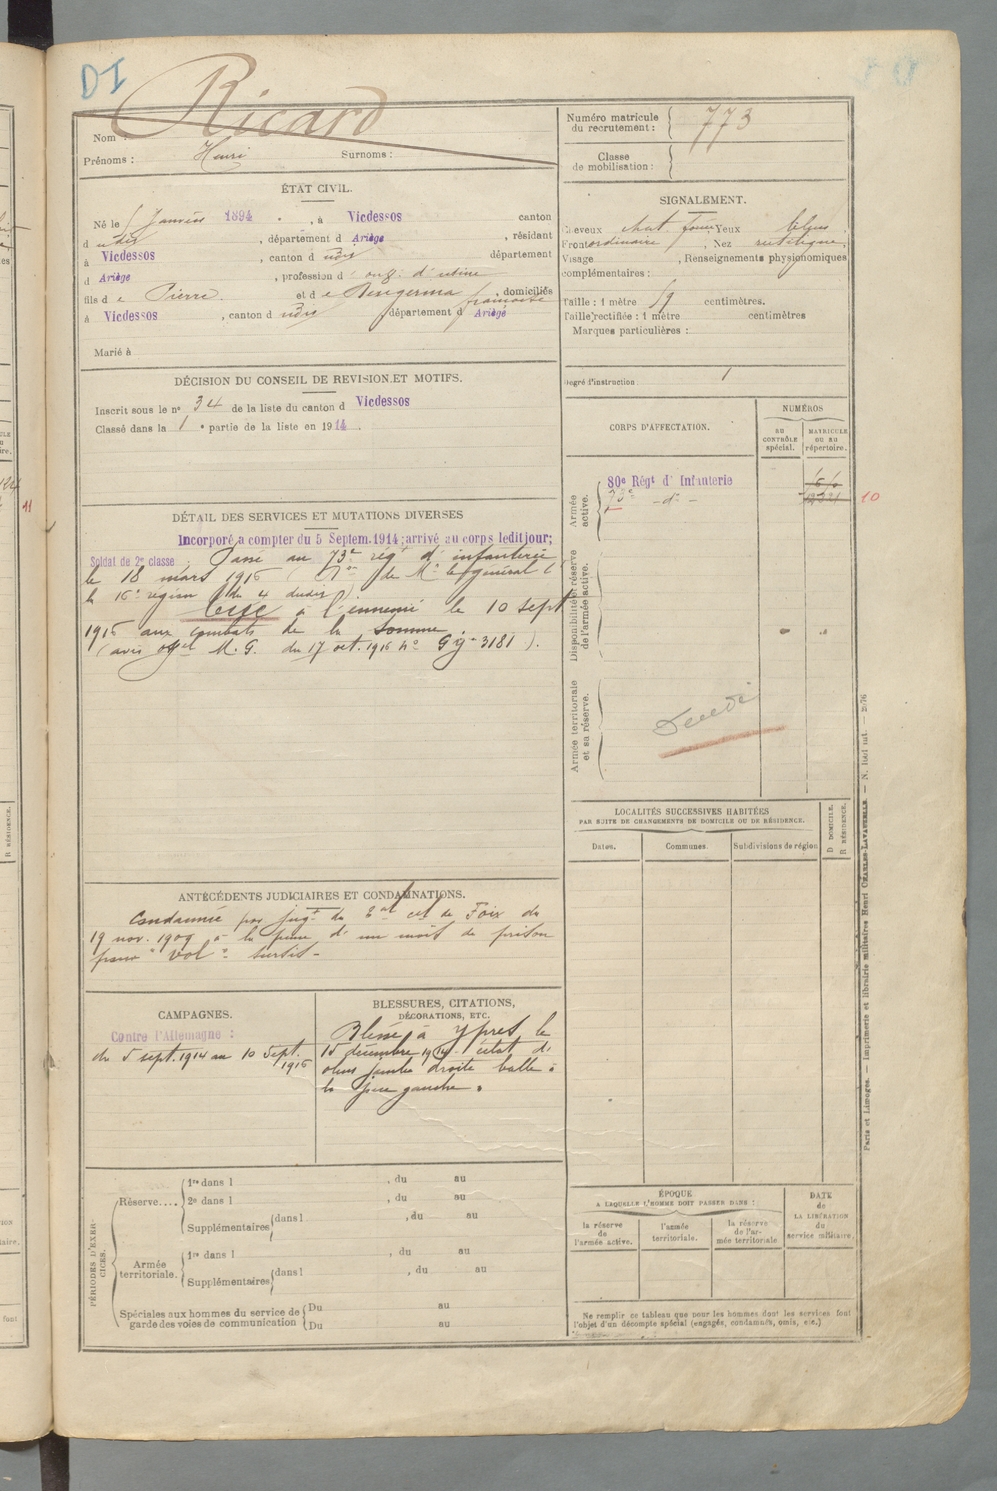 DI
Ricard
Nom :
Prénoms : Henri Surnoms :
Numéro matricule du recrutement : 773
Classe de mobilisation :
ÉTAT CIVIL.
Né le janvier 1894 , à Vicdessos canton
d udis , département d Ariège , résidant
à Vicdessos , canton d udis département
d Ariège , profession d' ouv. d'usine
fils d e Pierre et d e Berigerma françoise , domiciliés
à Vicdessos , canton d udis département d Ariège
Marié à
SIGNALEMENT.
Cheveux chat. foncé Yeux bleus
Front ordinaire , Nez rectiligne.
Visage , Renseignements physionomiques
complémentaires :
Taille : 1 mètre 59 centimètres.
Taille rectifiée : 1 mètre centimètres
Marques particulières :
Degré d'instruction : 1
DÉCISION DU CONSEIL DE REVISION ET MOTIFS.
Inscrit sous le n° 34 de la liste du canton d Vicdessos
Classé dans la 1 e partie de la liste en 1914 .
CORPS D'AFFECTATION.
NUMÉROS
AU CONTRÔLE spécial.
MATRICULE OU AU répertoire.
Armée active.
80e Régt d' Infanterie
73e - d° -
10
Disponibilité et réserve de l'armée active.
Armée territoriale et sa réserve.
Décédé
DÉTAIL DES SERVICES ET MUTATIONS DIVERSES
Incorporé a compter du 5 Septem. 1914; arrivé au corps ledit jour;
Soldat de 2e classe . Passé au 73e régt d'infanterie
le 18 mars 1916 ( de Mr le général Ct
la 16e région du 4 dudit)
Tué à l'ennemi le 10 sept
1916 aux combats de la Somme
(avis offel M. G. du 17 oct. 1916 n° 3181 ).
LOCALITÉS SUCCESSIVES HABITÉES
PAR SUITE DE CHANGEMENTS DE DOMICILE OU DE RÉSIDENCE.
Dates. Communes. Subdivisions de région
D DOMICILE.
R RÉSIDENCE.
ANTÉCÉDENTS JUDICIAIRES ET CONDAMNATIONS.
Condamné par jugt du Bal cel de Foix du
19 nov. 1909 à la peine d'un mois de prison
pour "vol" sursis -
CAMPAGNES.
Contre l'Allemagne :
du 5 sept. 1914 au 10 sept. 1916
BLESSURES, CITATIONS,
DÉCORATIONS, ETC.
Blessé à Ypres le
15 décembre 1914 - éclat d'
obus jambe droite balle à
la gauche.
PÉRIODES D'EXERCICES.
Réserve.... 1re dans l , du au
2e dans l , du au
Supplémentaires dans l , du au
Armée territoriale. 1re dans l , du au
Supplémentaires dans l , du au
Spéciales aux hommes du service de garde des voies de communication Du au
Du au
ÉPOQUE
A LAQUELLE L'HOMME DOIT PASSER DANS :
la réserve de l'armée active.
l'armée territoriale.
la réserve de l'armée territoriale
DATE de LA LIBÉRATION du service militaire.
Ne remplir ce tableau que pour les hommes dont les services font
l'objet d'un décompte spécial (engagés, condamnés, omis, etc.)
Paris et Limoges. — Imprimerie et librairie militaires Henri CHARLES-LAVAUZELLE.